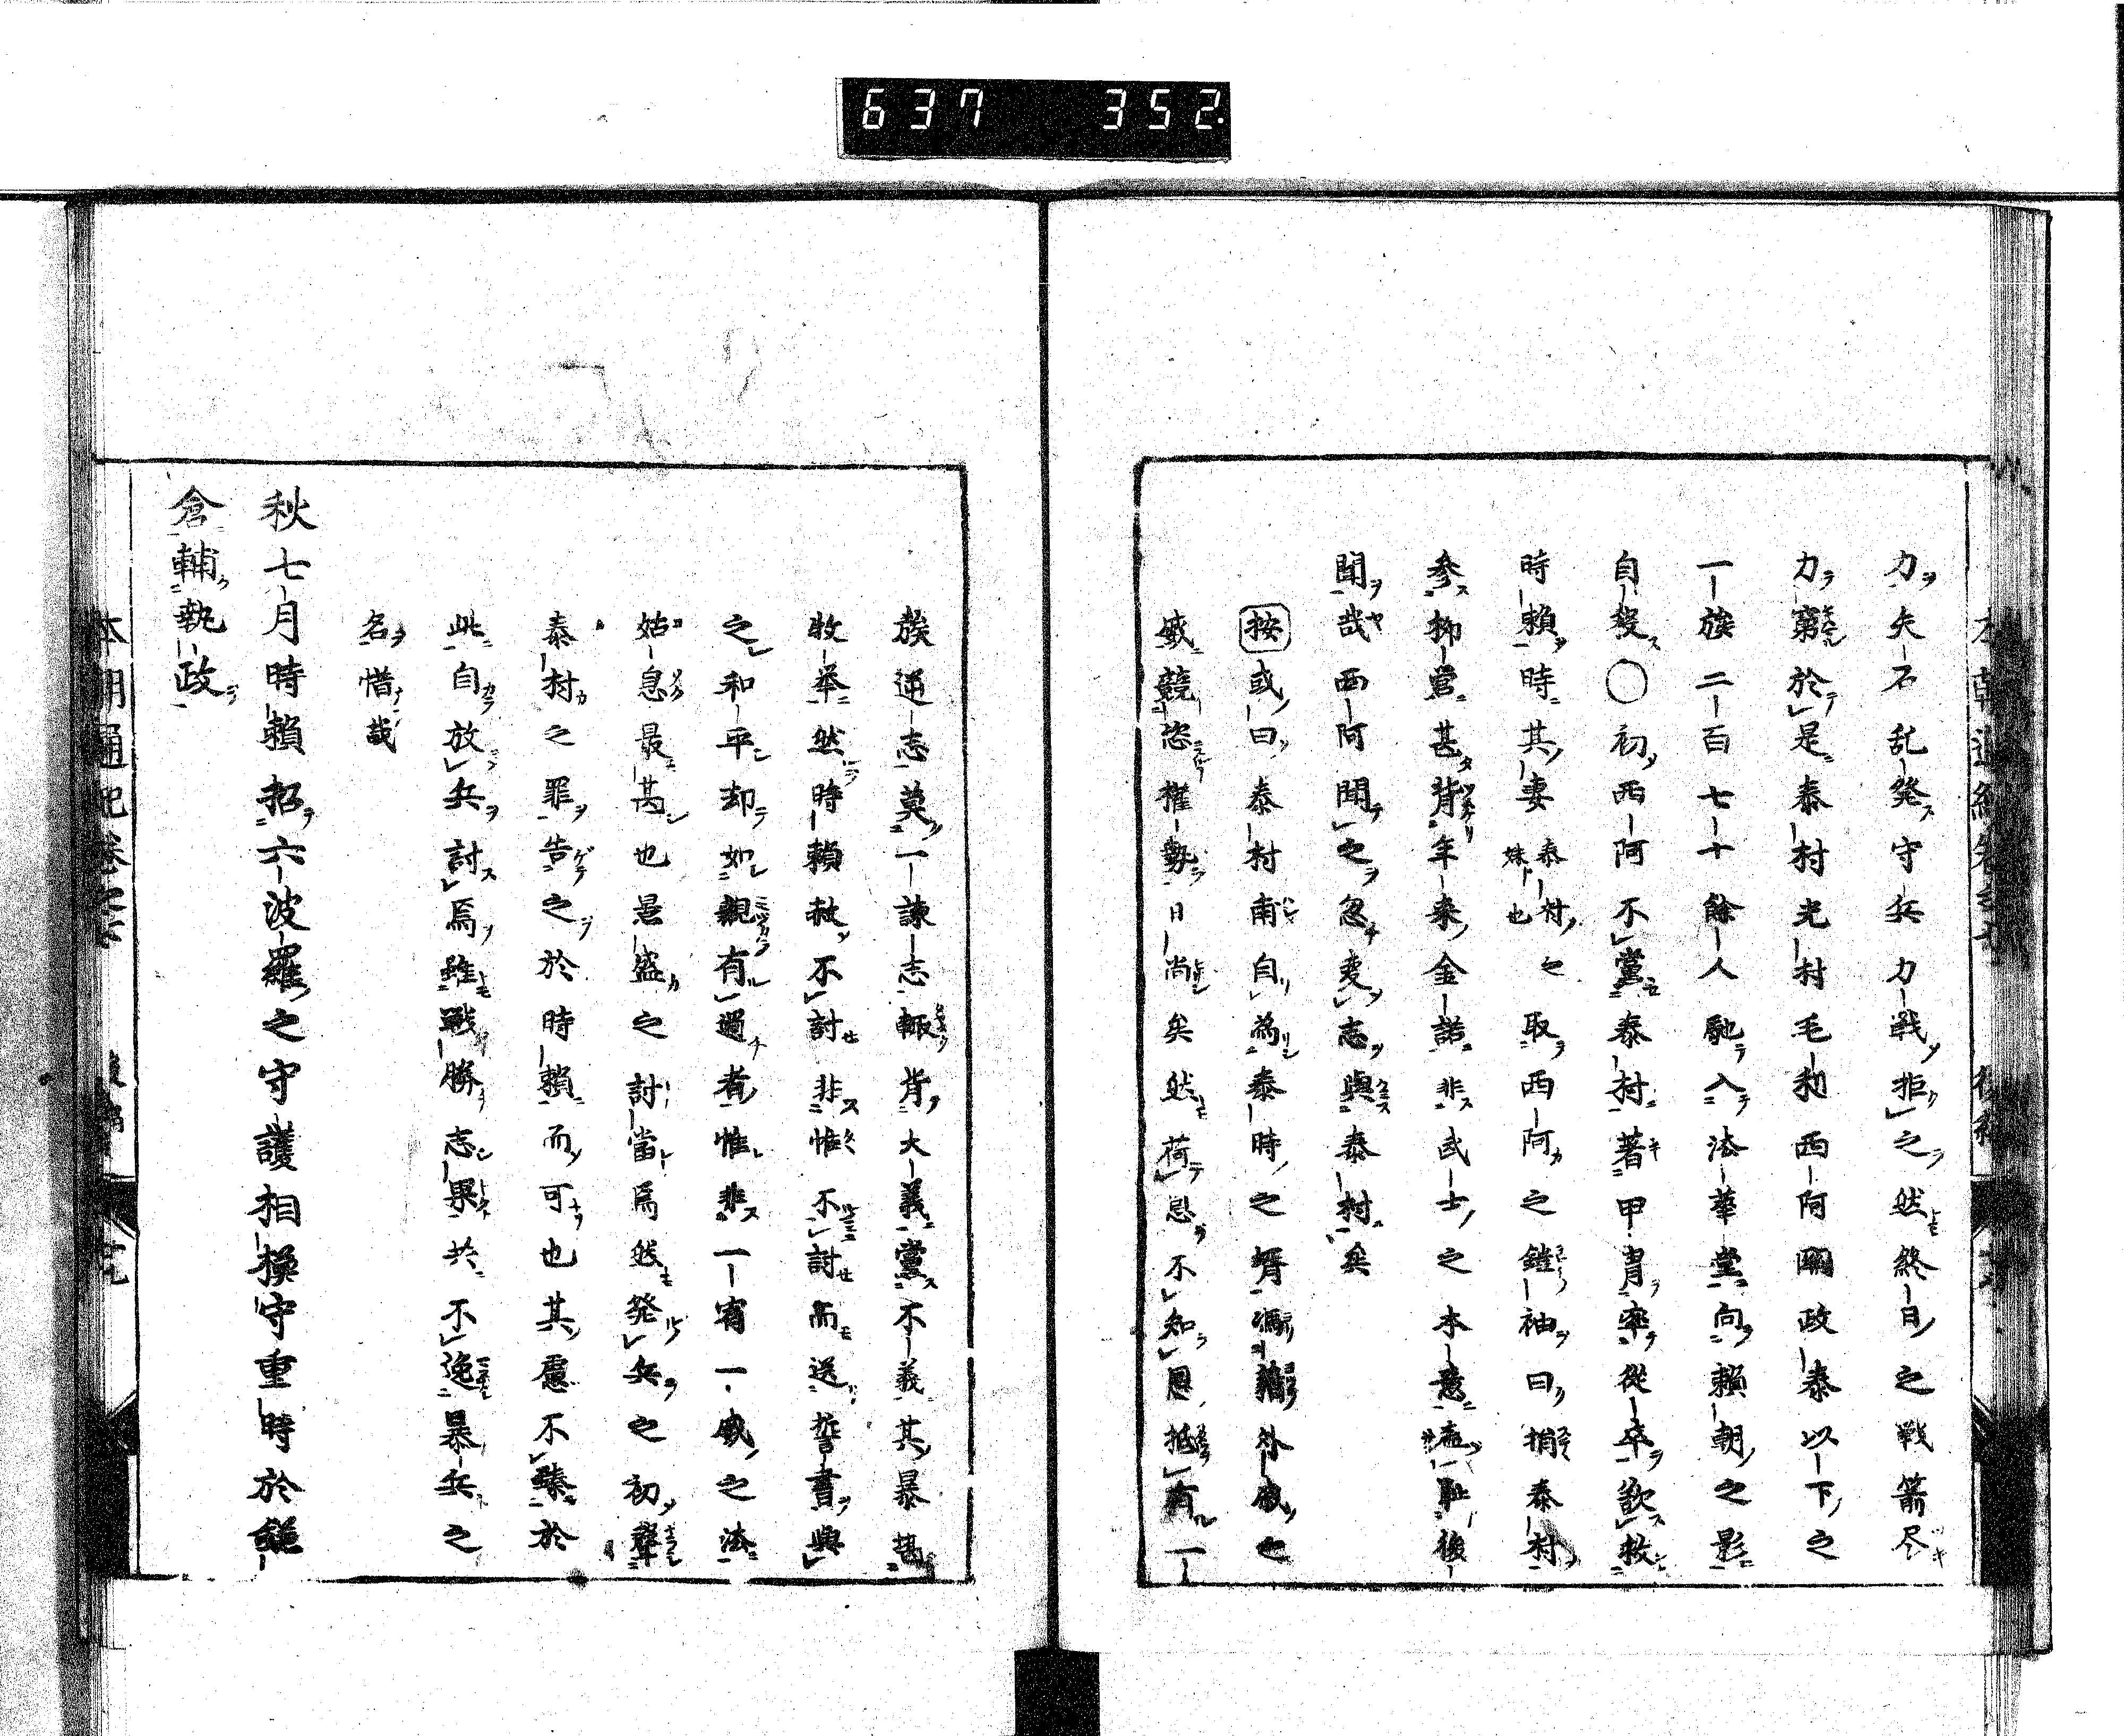 637 352.
力矢石乱発守兵力戦拒之然終日之戦箭尽
力窮於是泰村光村毛利西阿関政泰以下之
一族二百七十餘人馳入法華堂向頼朝之影
自殺〇初西阿不黨泰村著甲冑率従卒欲救
時頼時其妻泰村之妹也取西阿之鎧袖曰捐泰村
参柳営甚背年来金諾非武士之本意盍耻後
聞哉西阿聞之忽変志與泰村矣
按或曰泰村甫自為泰時之壻馮藉外戚之
威競恣権勢日尚矣然荷恩不知恩抵有一
族逆志莫一諫志輙背大義黨不義其暴甚
牧挙然時頼救不討非惟不討而送誓書與
之和平却如親有過者惟非一宥一戚之法
姑息最甚也是盛之討當焉然発兵之初挙
泰村之罪告之於時頼而可也其慮不臻於
此自放兵討焉雖戦勝志果共不逸暴兵之
名惜哉
秋七月時頼招六波羅之守護相模守重時於鎌
倉輔執政
本朝通紀巻之